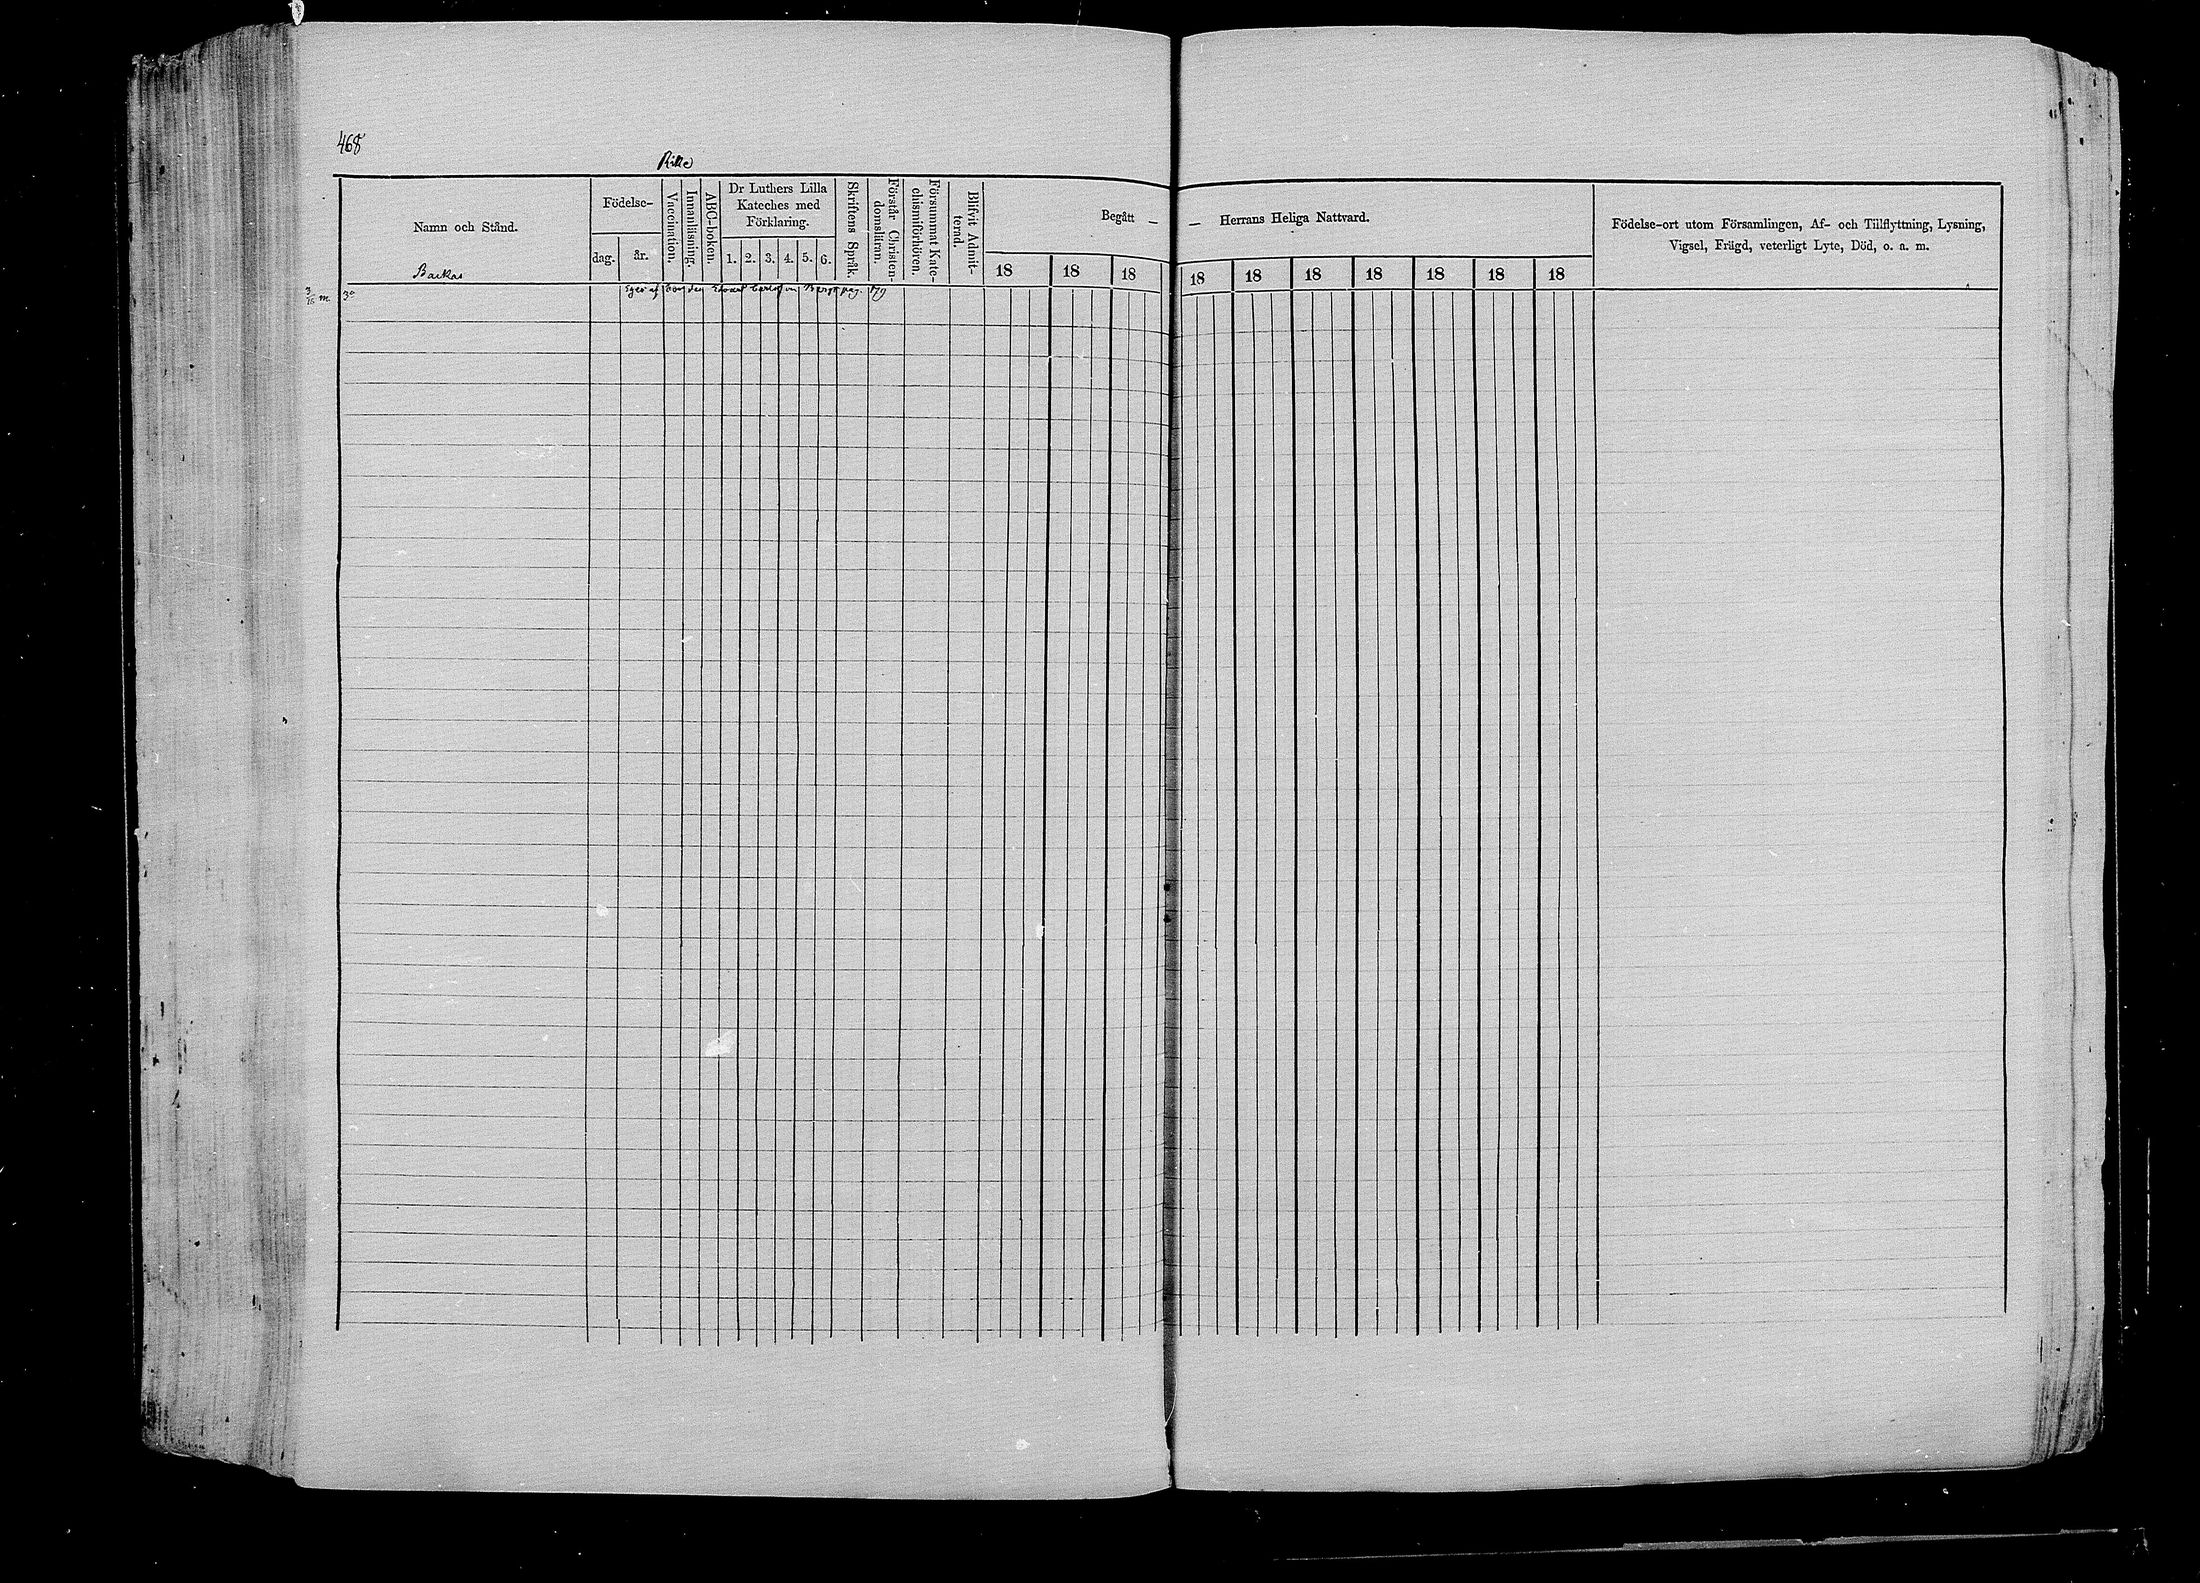 468
Rille
Namn och Stånd.
Backas
Födelse-
dag.
år.
Vaccination.
Innanläsning.
ABC-boken.
Dr Luthers Lilla
Kateches med
Förklaring.
1. 2. 3. 4. 5. 6.
Skriftens Språk.
Förstår Christen-
domsläran.
Försummat Kate-
chismiförhören.
Blifvit Admit-
terad.
Begått —
18 18 18
— Herrans Heliga Nattvard.
18 18 18 18 18 18 18
Födelse-ort utom Församlingen, Af- och Tillflyttning, Lysning,
Vigsel, Frägd, veterligt Lyte, Död, o. a. m.
3/16 m. 3o Eges af Edvard Carlsson pag. 179